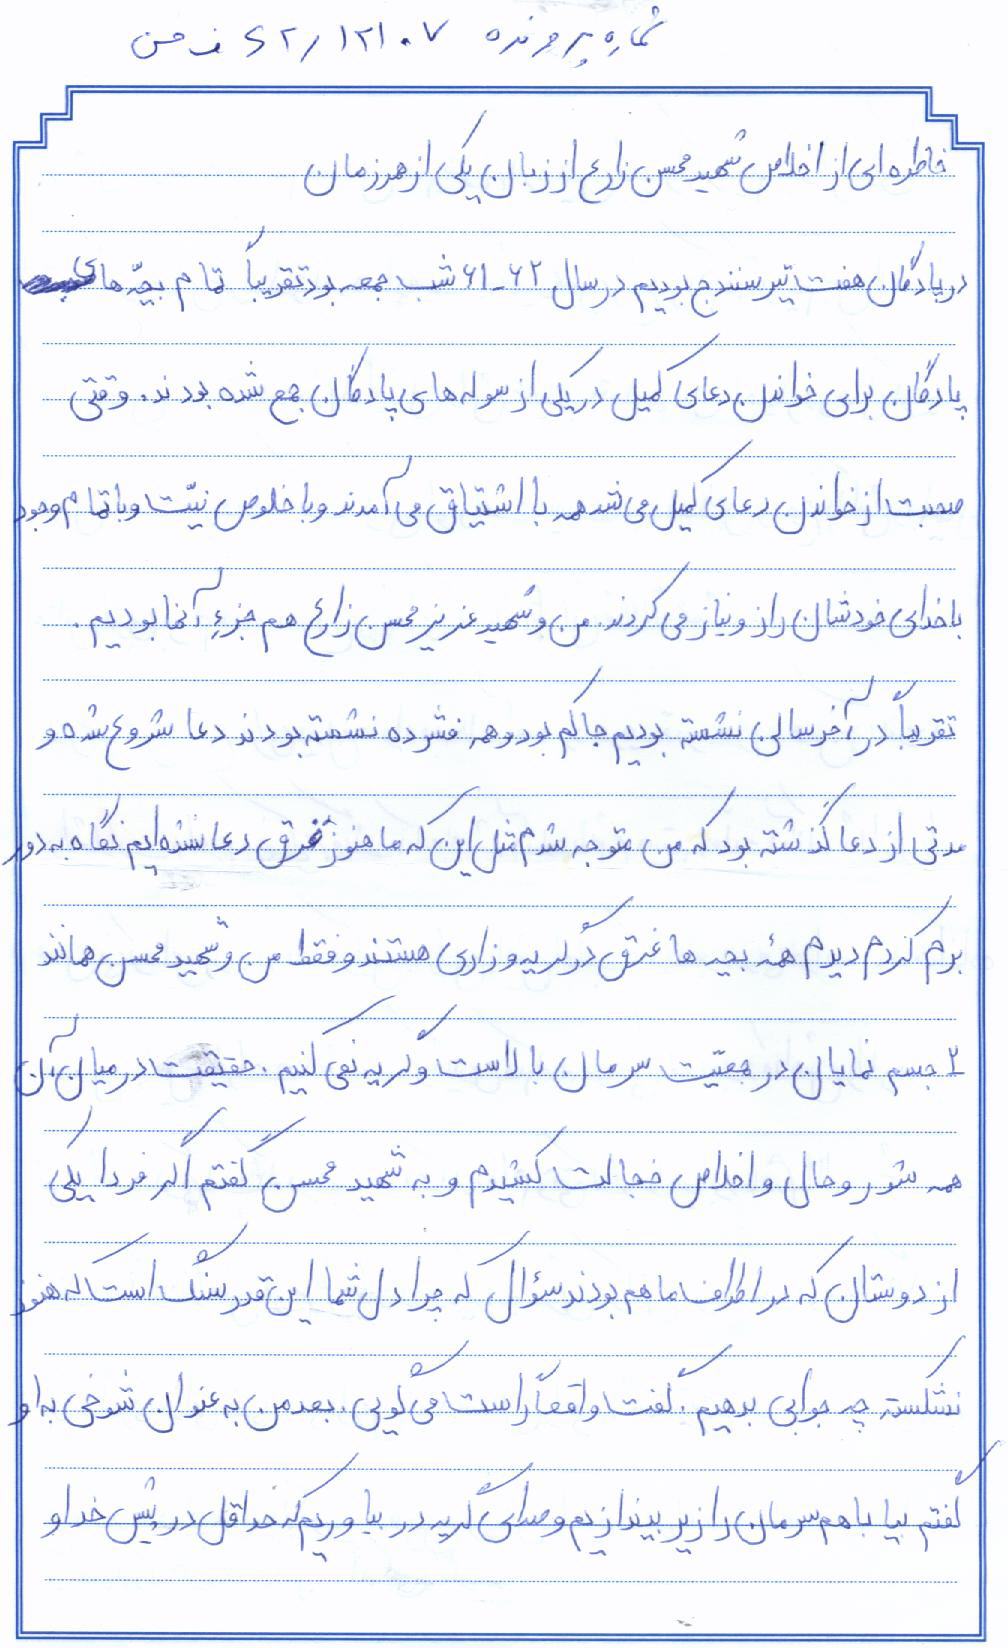 شماره پرونده ۶۲/۱۲۱۰۷ ف س
خاطره‌ای از اخلاص شهید محسن زارع از زبان یکی از همرزمان
در پادگان هفت تیر سنندج بودیم در سال ۶۲-۶۱ شب جمعه بود تقریباً تمام بچّه‌های
پادگان برای خواندن دعای کمیل در یکی از سوله‌های پادگان جمع شده بودند. وقتی
صحبت از خواندن دعای کمیل می‌شد همه با اشتیاق می‌آمدند و با خلوص نیّت و با تمام وجود
با خدای خودشان راز و نیاز می‌کردند. من و شهید عزیز محسن زارع هم جزءِ آنها بودیم.
تقریباً در آخر سالن نشسته بودیم جا کم بود و همه فشرده نشسته بودند دعا شروع شده و
مدتی از دعا گذشته بود که من متوجه شدم مثل این که ما هنوز غرق دعا نشده‌ایم نگاه به دور
برم کردم دیدم همۀ بچه‌ها غرق در گریه و زاری هستند و فقط من و شهید محسن همانند
۲ جسم نمایان در جمعیّت سرمان بالا است و گریه نمی‌کنیم. حقیقت در میان آن
همه شور و حال و اخلاص خجالت کشیدم و به شهید محسن گفتم اگر فردا یکی
از دوستان که در اطراف ما هم بودند سؤال که چرا دل شما این قدر سنگ است که هنوز
نشکسته چه جوابی بدهیم. گفت واقعاً راست می‌گویی. بعد من به عنوان شوخی به او
گفتم بیا با هم سرمان را زیر بیندازیم و صدای گریه در بیاوریم که حداقل در پیش خدا و